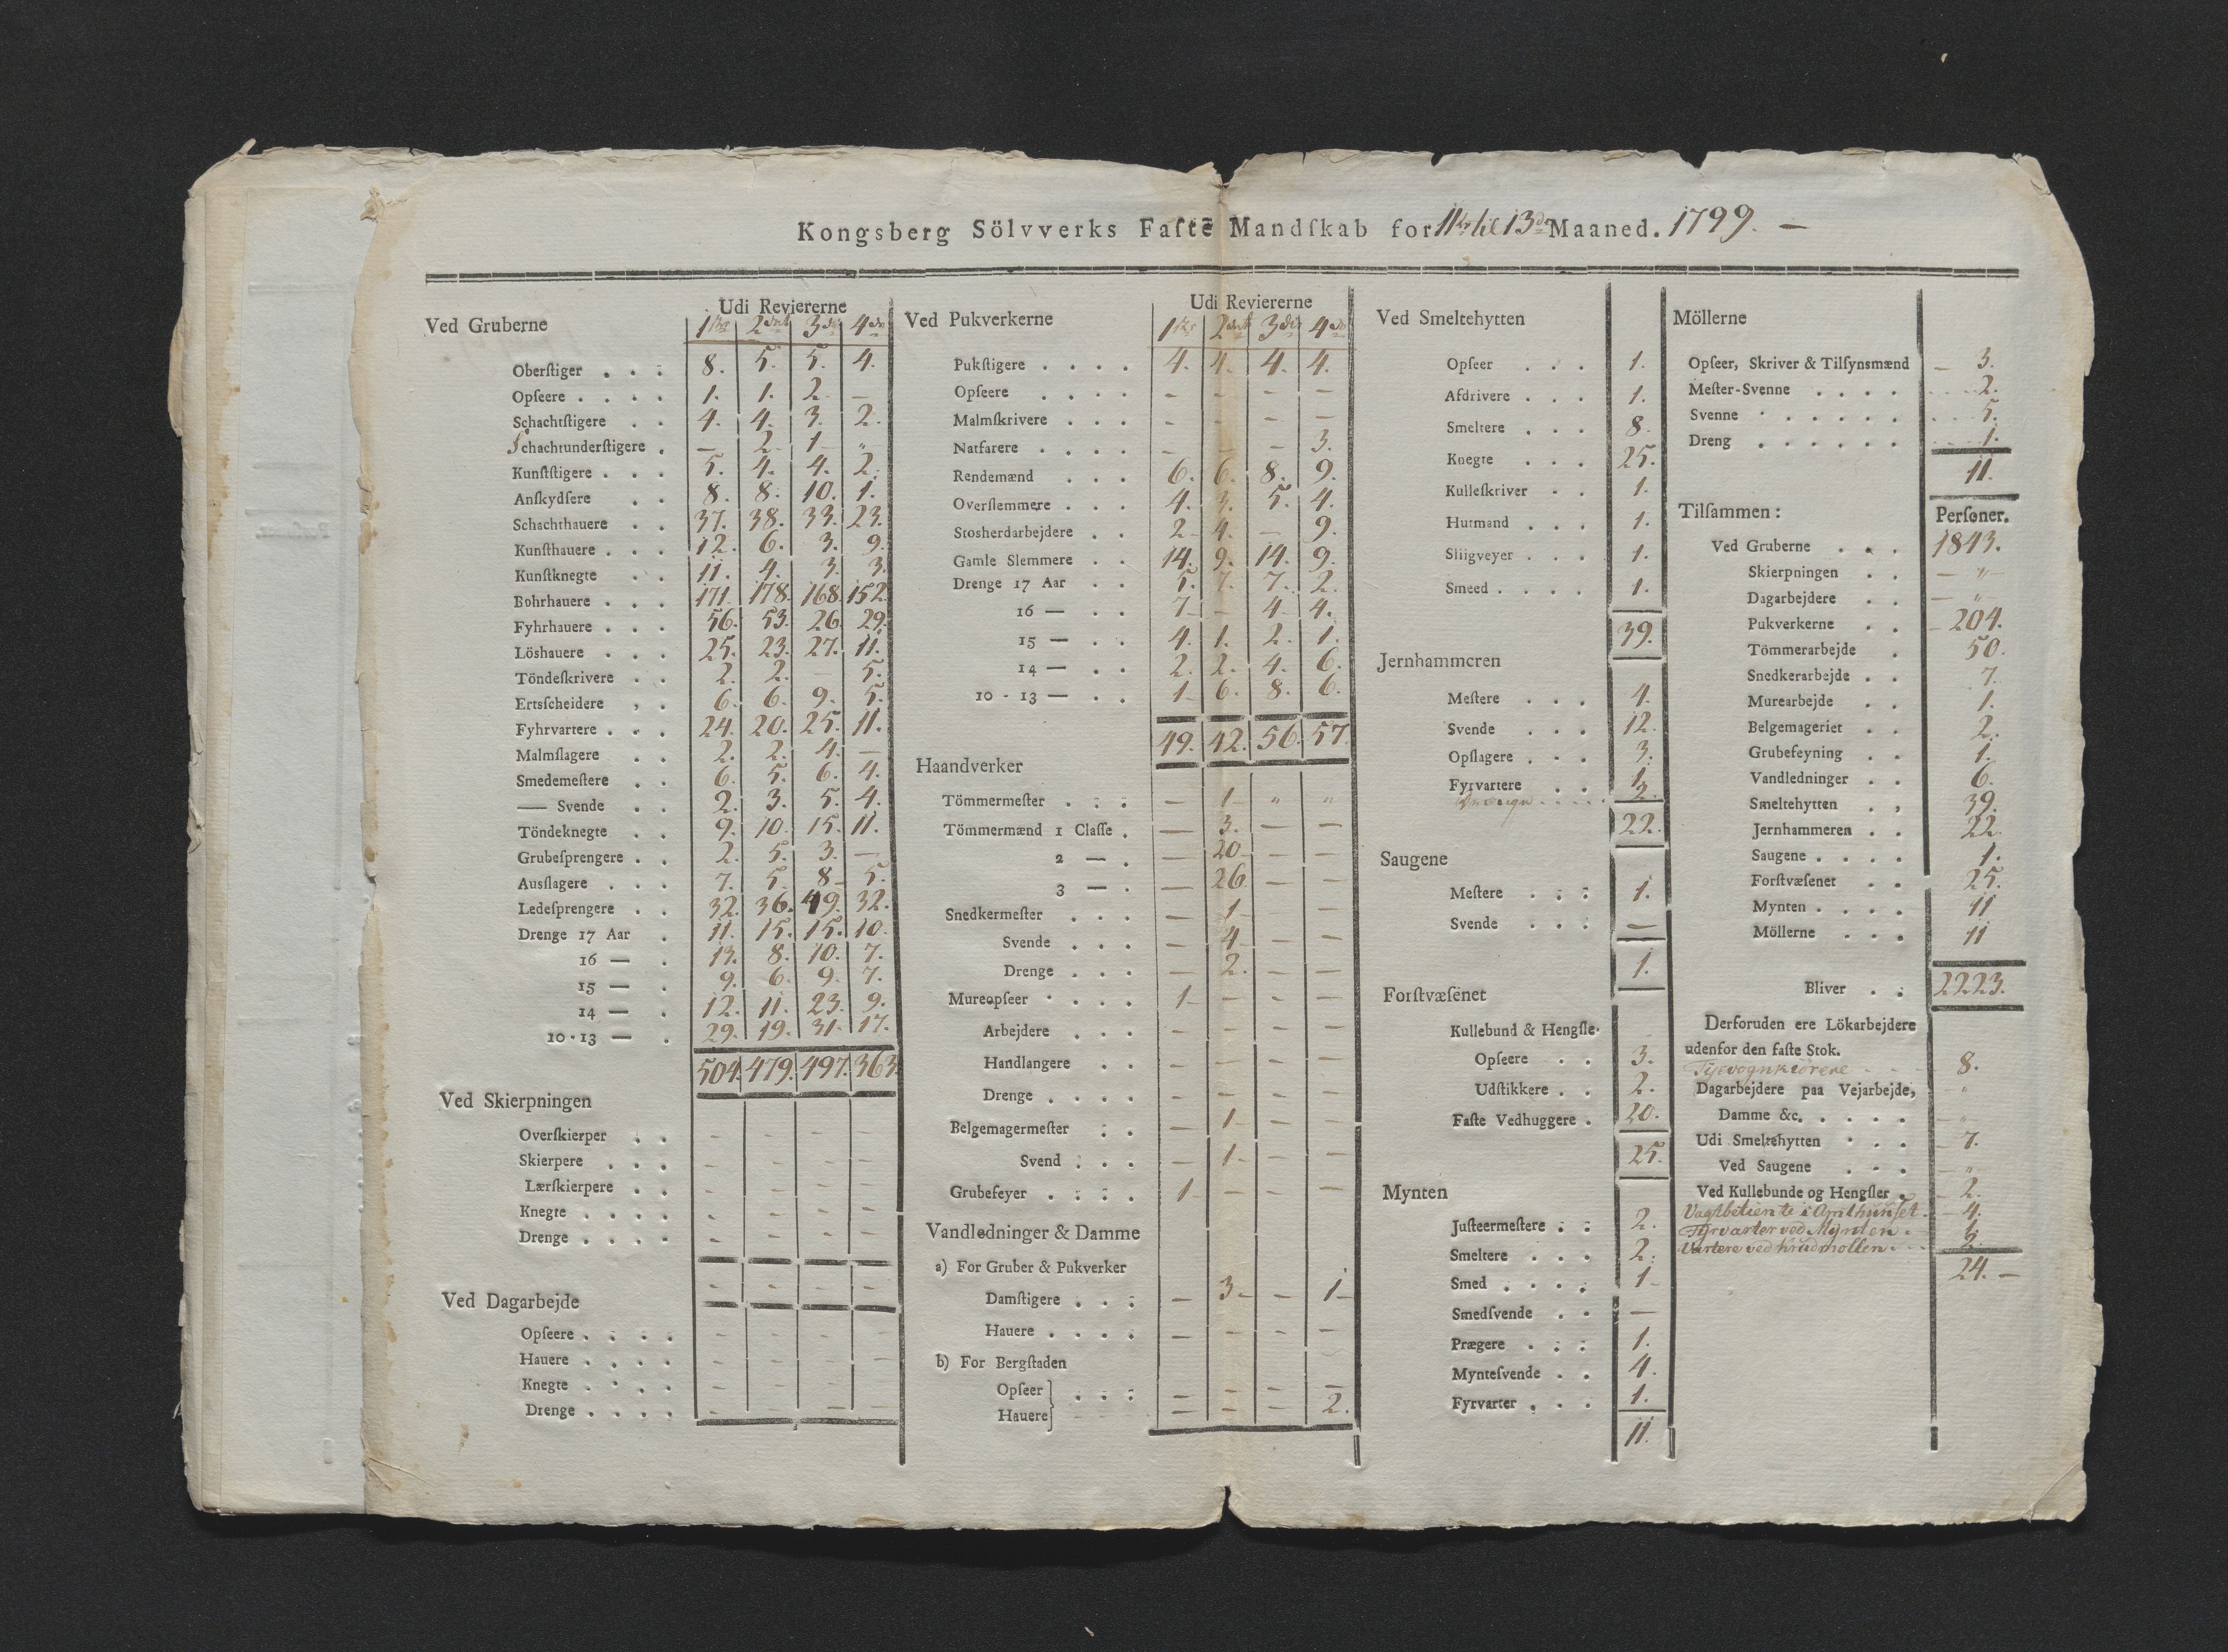 Kongsberg Sölvverks Faſte Mandſkab for 11te til 13de Maaned. 1799. —
Ved Gruberne
Udi Reviererne
1ste 2det 3die 4de
Oberſtiger . . . 8. 5. 5. 4.
Opſeere . . . . 1. 1. 2. —
Schachtſtigere . . 4. 4. 3. 2.
Schachtunderſtigere . — 2. 1. "
Kunſtſtigere . . . 5. 4. 4. 2.
Anſkydſere . . 8. 8. 10. 1.
Schachthauere . . 37. 38. 33. 23.
Kunſthauere . . . 12. 6. 3. 9.
Kunſtknegte . . 11. 4. 3. 3.
Bohrhauere . . . 171. 178. 168. 152.
Fyhrhauere . . . 56. 53. 26. 29.
Löshauere . . . 25. 23. 27. 11.
Töndeſkrivere . . 2. 2. — 5.
Ertsſcheidere , . 6. 6. 9. 5.
Fyhrvartere . . . 24. 20. 25. 11.
Malmſlagere . . 2. 2. 4. —
Smedemeſtere . . 6. 5. 6. 4.
— Svende . . 2. 3. 5. 4.
Töndeknegte . . 9. 10. 15. 11.
Grubeſprengere . . 2. 5. 3. —
Ausſlagere . . . 7. 5. 8. 5.
Ledeſprengere . . 32. 36. 49. 32.
Drenge 17 Aar . 11. 15. 15. 10.
16 — . 13. 8. 10. 7.
15 — . 9. 6. 9. 7.
14 — . 12. 11. 23. 9.
10-13 — . 29. 19. 31. 17.
504. 479. 497. 363.
Ved Skierpningen
Overſkierper . . - - - -
Skierpere . . . - - - -
Lærſkierpere . . - - - -
Knegte . . . . - - - -
Drenge . . . . - - - -
- - - -
Ved Dagarbejde
Opſeere . . . . - - - -
Hauere . . . . - - - -
Knegte . . . . - - - -
Drenge . . . . - - - -
Ved Pukverkerne
Udi Reviererne
1ste 2det 3die 4de
Pukſtigere . . . . 4. 4. 4. 4.
Opſeere . . . . - - - -
Malmſkrivere . . . - - - -
Natfarere . . . . — — — 3.
Rendemænd . . . 6. 6. 8. 9.
Overſlemmere . . . 4. 3. 5. 4.
Stosherdarbejdere . . 2. 4. — 9.
Gamle Slemmere . . 14. 9. 14. 9.
Drenge 17 Aar . . 5. 7. 7. 2.
16 — . . 7. — 4. 4.
15 — . . 4. 1. 2. 1.
14 — . . 2. 2. 4. 6.
10 - 13 — . . 1. 6. 8. 6.
49. 42. 56. 57.
Haandverker
Tömmermeſter . . . — 1 " "
Tömmermænd 1 Claſſe . — 3. — —
2 — . — 20 — —
3 — . — 26. — —
Snedkermeſter . . . — 1 —
Svende . . . — 4 — —
Drenge . . . — 2. — —
Mureopſeer . . . . 1 — — —
Arbejdere . . . — — — —
Handlangere . . — — — —
Drenge . . . . — — — —
Belgemagermeſter . . — 1 — —
Svend . . . — 1 — —
Grubefeyer . . . . 1 — — —
Vandledninger & Damme
a) For Gruber & Pukverker
Damſtigere . . . — 3 — 1
Hauere . . . . — — — —
b) For Bergſtaden
Opſeer } . . . —
Hauere — — — 2.
Ved Smeltehytten
Opſeer . . . 1.
Afdrivere . . . 1.
Smeltere . . . 8.
Knegte . . . 25.
Kulleſkriver . . 1.
Hutmand . . . 1.
Sliigveyer . . . 1.
Smeed . . . . 1.
39.
Jernhammeren
Meſtere . . . 4.
Svende . . . 12.
Opſlagere . . . 3.
Fyrvartere . . 1.
Drenge . . . . . 2.
22.
Saugene
Meſtere . . . 1.
Svende . . . —
1.
Forſtvæſenet
Kullebund & Hengſle-
Opſeere . . 3.
Udſtikkere . . 2.
Faſte Vedhuggere . 20.
25.
Mynten
Juſteermeſtere . . 2.
Smeltere . . . 2.
Smed . . . . 1
Smedſvende . . —
Prægere . . . 1.
Mynteſvende . . 4.
Fyrvarter . . . 1.
11.
Möllerne
Opſeer, Skriver & Tilſynsmænd 3.
Meſter-Svenne . . . . 2.
Svenne . . . . . . 5.
Dreng . . . . . . 1.
11.
Tilſammen : Perſoner.
Ved Gruberne . . . 1843.
Skierpningen . . — " —
Dagarbejdere . . — " —
Pukverkerne . . 204.
Tömmerarbejde . 50.
Snedkerarbejde . . 7.
Murearbejde . . 1.
Belgemageriet . . 2.
Grubefeyning . . 1.
Vandledninger . . 6.
Smeltehytten . , 39.
Jernhammeren . . 22.
Saugene . . . . 1.
Forſtvæſenet . . 25.
Mynten . . . . 11
Möllerne . . . 11
Bliver . . 2223.
Derforuden ere Lökarbejdere
udenfor den faſte Stok.
8.
Dagarbejdere paa Vejarbejde,
Damme &c. . . . . "
Udi Smeltehytten . . . 7.
Ved Saugene . . . "
Ved Kullebunde og Hengſler . 2.
Vagtbetiente i Amthuuset . 4.
Fyrvarter ved Mynten . 1.
Vartere ved Krudmøllen . . 2.
24. —